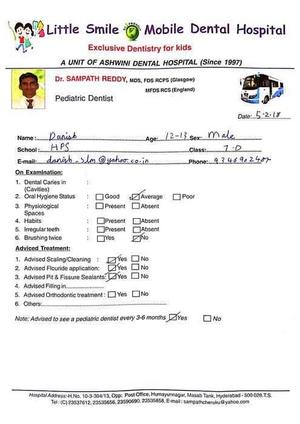 Little Smile Mobile Dental Hospital
Exclusive Dentistry for kids
A UNIT OF ASHWINI DENTAL HOSPITAL (Since 1997)
Dr. SAMPATH REDDY, MDS, FDS RCPS (Glasgow)
MFDS RCS (England)
Pediatric Dentist
Date: 5-2-18
Name: Danish Age: 12-13 Sex: Male
School: HPS Class: 7-D
E-mail: danish_slm@yahoo.co.in Phone:
On Examination:
1. Dental Caries in :
(Cavities)
2. Oral Hygiene Status : Good Average Poor
3. Physiological : Present Absent
Spaces
4. Habits : Present Absent
5. Irregular teeth : Present Absent
6. Brushing twice : Yes No
Adviced Treatment:
1. Advised Scaling/Cleaning : Yes No
2. Advised Flouride application: Yes No
3. Advised Pit & Fissure Sealants: Yes No
4. Advised Filling in
5. Advised Orthodontic treatment : Yes No
6. Others:
Note: Advised to see a pediatric dentist every 3-6 months Yes No
Hospital Address: H.No. 10-3-304/13, Opp: Post Office, Humayunnagar, Masab Tank, Hyderabad - 500 028, T.S.
Tel: (C) 23537612, 23535656, 23590690, 23535858, E-mail: sampathcheruku@yahoo.com